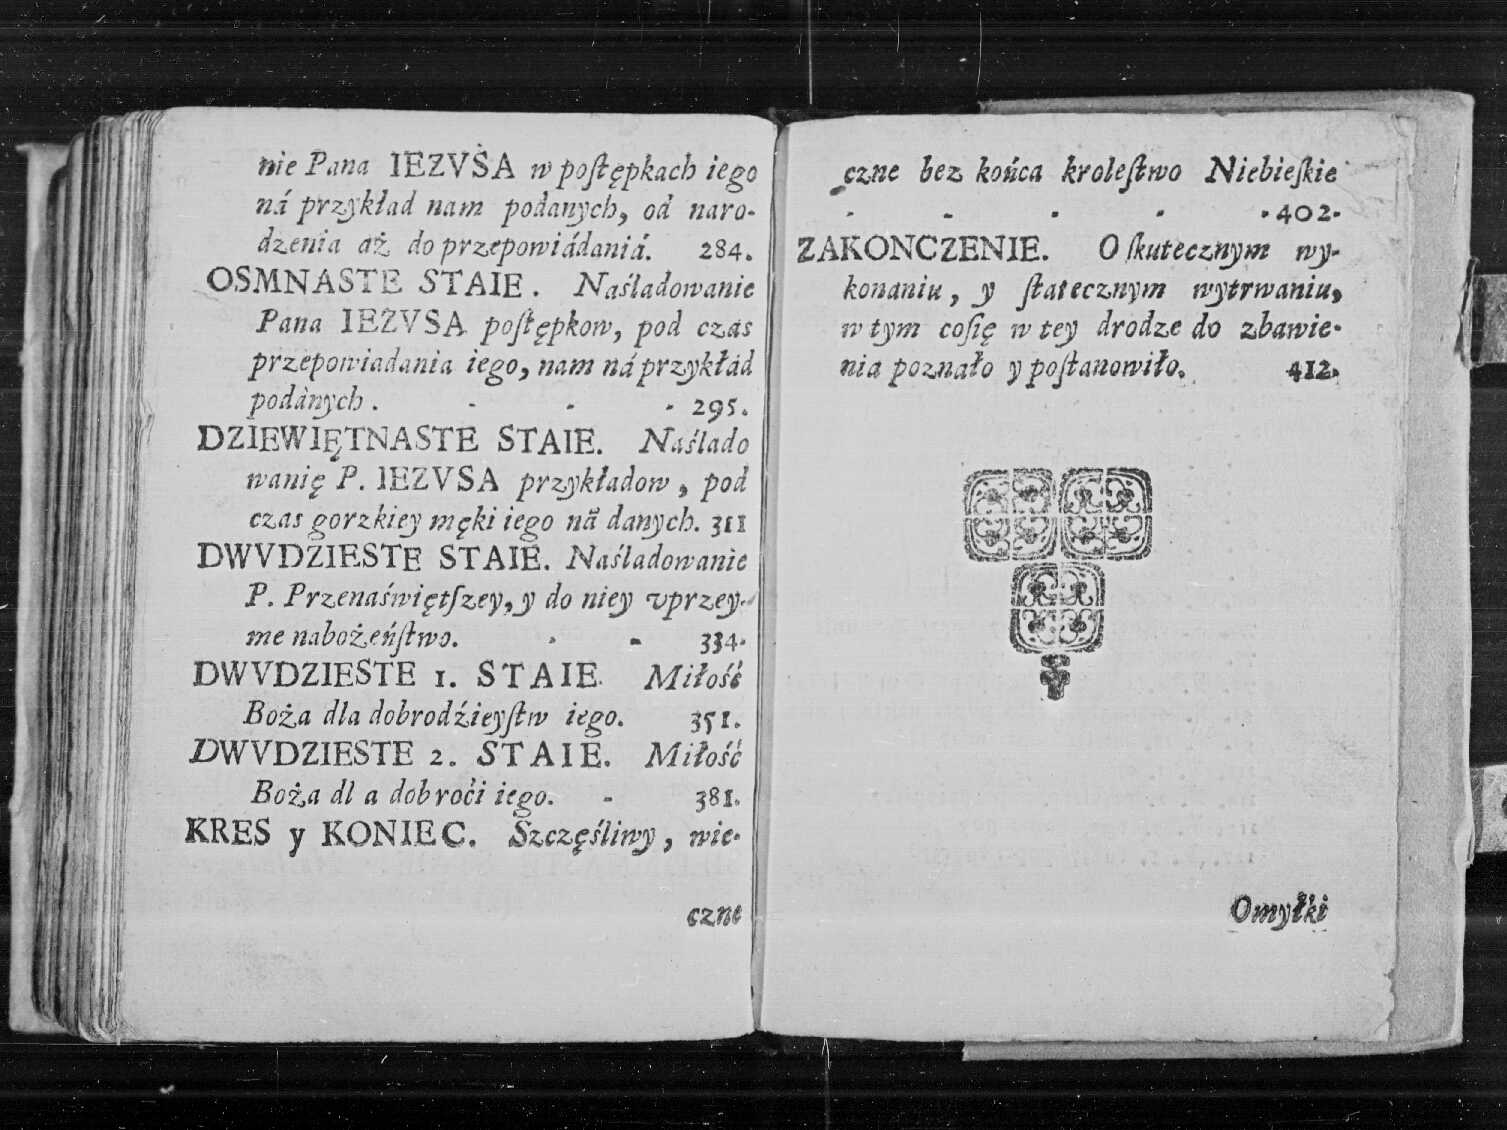 nie Pana IEZVSA w poſtępkach iego
ná przykład nam podanych, od naro-
dzenia aż do przepowiádaniá. 284.
OSMNASTE STAIE. Naśladowanie
Pana IEZVSA poſtępkow, pod czas
przepowiadania iego, nam ná przykłád
podánych. - - - 295.
DZIEWIĘTNASTE STAIE. Naślado
wanię P. IEZVSA przykładow, pod
czas gorzkiey męki iego ná danych. 311
DWVDZIESTE STAIE. Naśladowanie
P. Przenaświętſzey, y do niey vprzey-
me nabożeńſtwo. - - 334.
DWVDZIESTE 1. STAIE. Miłość
Boża dla dobrodźieyſtw iego. 351.
DWVDZIESTE 2. STAIE. Miłość
Boża dl a dobroći iego. - 381.
KRES y KONIEC. Szczęśliwy, wie-
czne
czne bez końca kroleſtwo Niebieſkie
- - - - - 402.
ZAKONCZENIE. O ſkutecznym wy-
konaniu, y ſtatecznym wytrwaniu,
w tym coſię w tey drodze do zbawie-
nia poznało y poſtanowiło. 412.
Omyłki